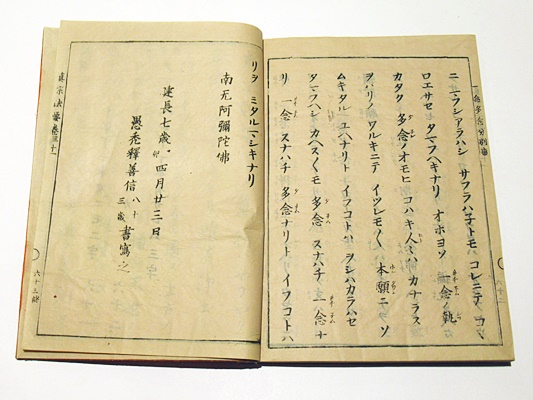 一念多念分別事
ニマフシアラハシ サフラハ子トモ コレニテ コヽ
ロエサセ タマフヘキナリ オホヨソ 一念ノ執
カタク 多念ノオモヒ コハキ人〻ハ カナラス
ヲハリノ ワルキニテ イツレモ〱 本願ニ ソ
ムキタル ユヘナリト イフコトハ ヲシハカラハセ
タマフヘシ カヘス〱モ 多念 スナハチ 一念ナ
リ 一念 スナハチ 多念ナリト イフコトハ
リヲ ミタルマシキナリ
南无阿彌陀佛
建長七歳 四月廿三日
愚禿釋善信 八十三歳 書寫之
真宗法要
六十三